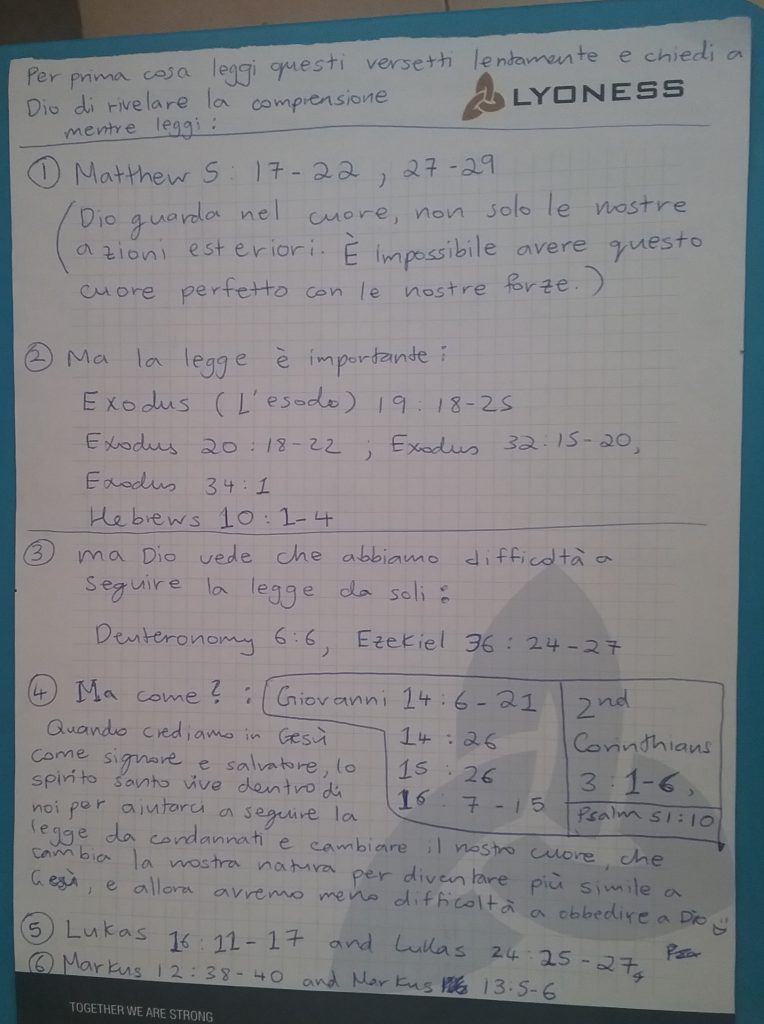 Per prima cosa leggi questi versetti lentamente e chiedi a
Dio di rivelare la comprensione
LYONESS
mentre leggi:
① Matthew 5: 17-22, 27-29
(Dio guarda nel cuore, non solo le nostre
azioni esteriori. È impossibile avere questo
cuore perfetto con le nostre forze.)
② Ma la legge è importante:
Exodus (L'esodo) 19:18-25
Exodus 20:18-22; Exodus 32:15-20,
Exodus 34:1
Hebrews 10:1-4
③ ma Dio vede che abbiamo difficoltà a
seguire la legge da soli:
Deuteronomy 6:6, Ezekiel 36:24-27
④ Ma come?: Giovanni 14:6-21
14:26
15:26
16:7-15
2nd
Corinthians
3:1-6,
Psalm 51:10
Quando crediamo in Gesù
come signore e salvatore, lo
spirito santo vive dentro di
noi per aiutarci a seguire la
legge da condannati e cambiare il nostro cuore, che
cambia la nostra natura per diventare più simile a
Gesù, e allora avremo meno difficoltà a obbedire a Dio
⑤ Lukas 16:11-17 and Lukas 24:25-27,
⑥ Markus 12:38-40 and Markus 13:5-6
TOGETHER WE ARE STRONG